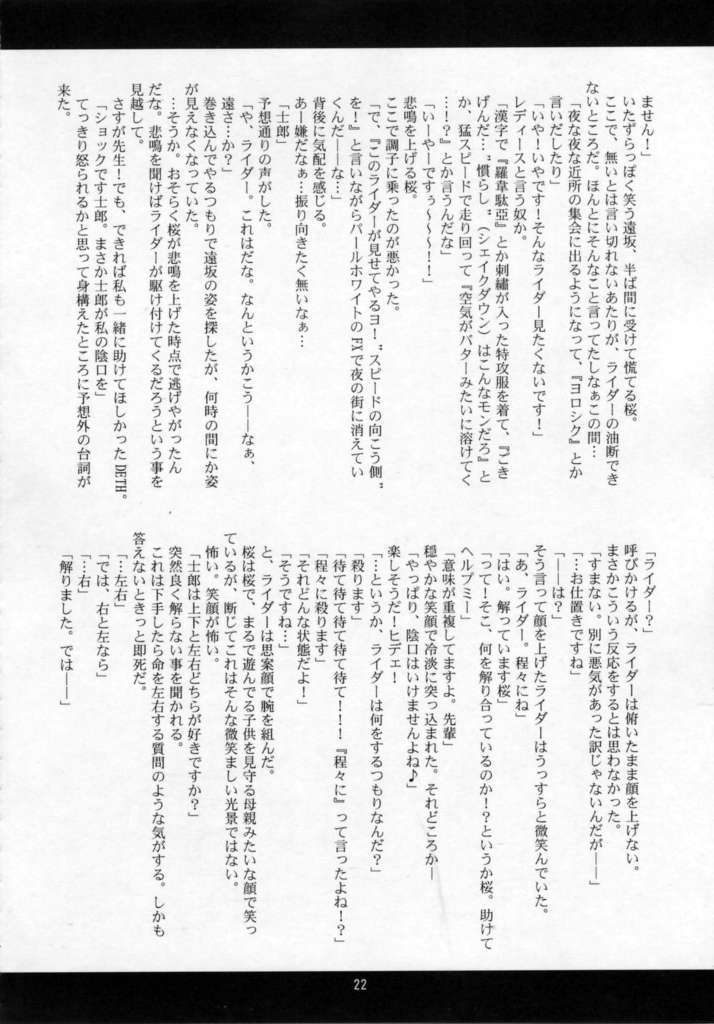 ません！」
いたずらっぽく笑う遠坂、半ば間に受けて慌てる桜。
ここで、無いとは言い切れないあたりが、ライダーの油断でき
ないところだ。ほんとにそんなこと言ってたしなぁこの間…
「夜な夜な近所の集会に出るようになって、『ヨロシク』とか
言いだしたり」
「いや！いやです！そんなライダー見たくないです！」
レディースと言う奴か。
「漢字で『羅韋駄亞』とか刺繍が入った特攻服を着て、『ごき
げんだ…〝慣らし〟（シェイクダウン）はこんなモンだろ』と
か、猛スピードで走り回って『空気がバターみたいに溶けてく
…！？』とか言うんだな」
「いーやーですぅ～～～！！」
悲鳴を上げる桜。
ここで調子に乗ったのが悪かった。
「で、『このライダーが見せてやるヨ！〝スピードの向こう側〟
を！』と言いながらパールホワイトのFXで夜の街に消えてい
くんだ――な…」
背後に気配を感じる。
あー嫌だなぁ…振り向きたく無いなぁ…
「士郎」
予想通りの声がした。
「や、ライダー。これはだな。なんというかこう――なぁ、
遠さ…か？」
巻き込んでやるつもりで遠坂の姿を探したが、何時の間にか姿
が見えなくなっていた。
…そうか。おそらく桜が悲鳴を上げた時点で逃げやがったん
だな。悲鳴を聞けばライダーが駆け付けてくるだろうという事を
見越して。
さすが先生！でも、できれば私も一緒に助けてほしかったDETH。
「ショックです士郎。まさか士郎が私の陰口を」
てっきり怒られるかと思って身構えたところに予想外の台詞が
来た。
「ライダー？」
呼びかけるが、ライダーは俯いたまま顔を上げない。
まさかこういう反応をするとは思わなかった。
「すまない。別に悪気があった訳じゃないんだが――」
「…お仕置きですね」
「――は？」
そう言って顔を上げたライダーはうっすらと微笑んでいた。
「あ、ライダー。程々にね」
「はい。解っています桜」
「って！そこ、何を解り合っているのか！？というか桜。助けて
ヘルプミー」
「意味が重複してますよ。先輩」
穏やかな笑顔で冷淡に突っ込まれた。それどころか―
「やっぱり、陰口はいけませんよね♪」
楽しそうだ！ヒデェ！
「…というか、ライダーは何をするつもりなんだ？」
「殺ります」
「待て待て待て待て待て！！！『程々に』って言ったよね！？」
「程々に殺ります」
「それどんな状態だよ！」
「そうですね…」
と、ライダーは思案顔で腕を組んだ。
桜は桜で、まるで遊んでる子供を見守る母親みたいな顔で笑っ
ているが、断じてこれはそんな微笑ましい光景ではない。
怖い。笑顔が怖い。
「士郎は上下と左右どちらが好きですか？」
突然良く解らない事を聞かれる。
これは下手したら命を左右する質問のような気がする。しかも
答えないときっと即死だ。
「…左右」
「では、右と左なら」
「…右」
「解りました。では――」
22